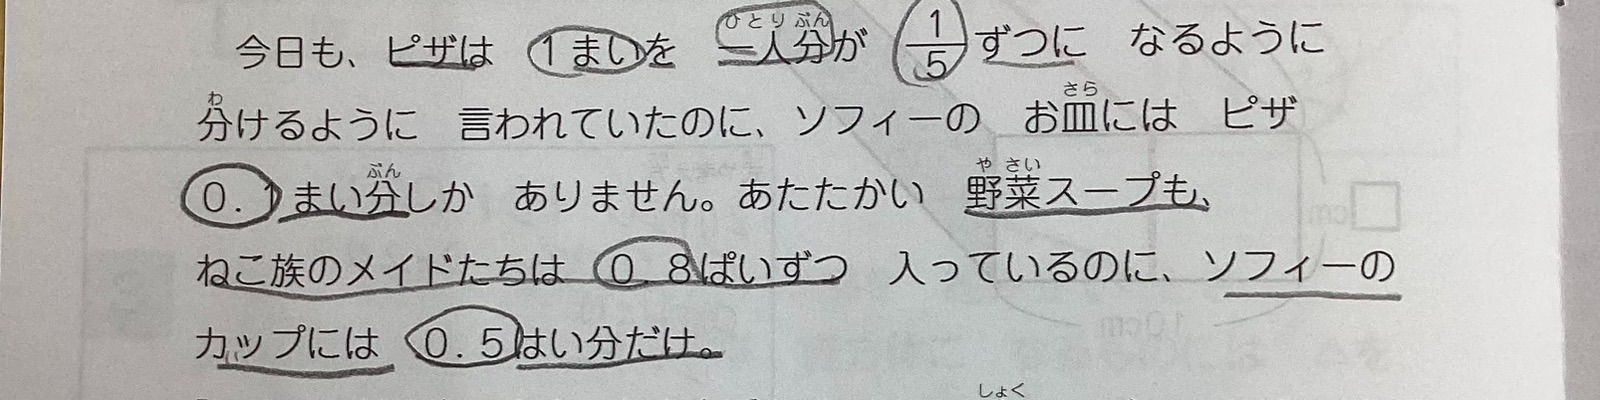 今日も、ピザは　１まいを　一人分が　1/5ずつに　なるように
分けるように　言われていたのに、ソフィーの　お皿には　ピザ
０.１まい分しか　ありません。あたたかい　野菜スープも、
ねこ族のメイドたちは　０.８ぱいずつ　入っているのに、ソフィーの
カップには　０.５はい分だけ。